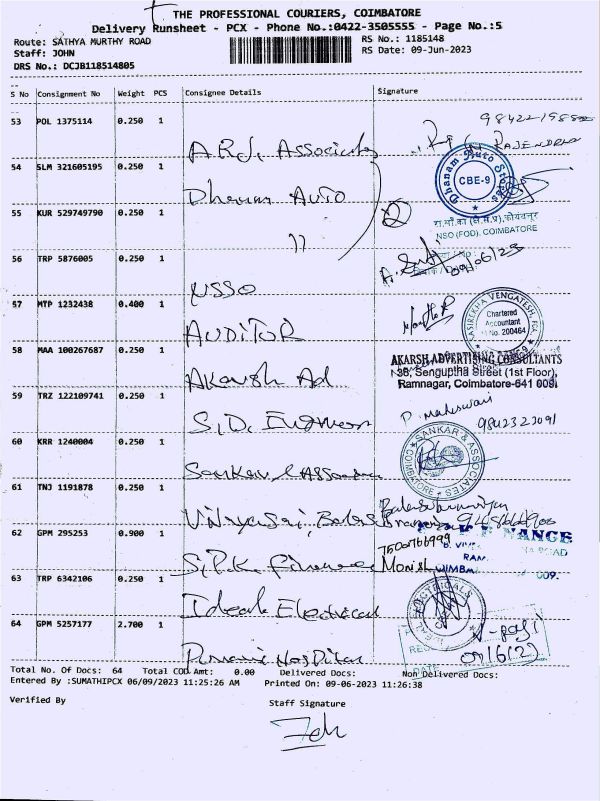 THE PROFESSIONAL COURIERS, COIMBATORE
Delivery Runsheet - PCX - Phone No.:0422-3505555 - Page No.:5
Route: SATHYA MURTHY ROAD
RS No.: 1185148
Staff: JOHN
RS Date: 09-Jun-2023
DRS No.: DCJB118514805
S No Consignment No Weight PCS Consignee Details Signature
53 POL 1375114 0.250 1
A.R.J. Associates
RAJENDRAN
54 SLM 321605195 0.250 1
Dhanam Auto
Dhanam Auto Stores
CBE-9
55 KUR 529749790 0.250 1
11
NSO (FOD), COIMBATORE
56 TRP 5876005 0.250 1
NSSO
09/06/23
57 MTP 1232438 0.400 1
AUDITOR
SASIREKHA VENGATESH, FCA
Chartered
Accountant
No. 200464
58 MAA 100267687 0.250 1
Akarsh Ad
AKARSH ADVERTISING CONSULTANTS
38, Senguptha Street (1st Floor),
Ramnagar, Coimbatore-641 009.
59 TRZ 122109741 0.250 1
S.D. Engineers
P. Maheswari
9842323091
60 KRR 1240004 0.250 1
Sankar & Associates
SANKAR & ASSOCIATES
COIMBATORE
61 TNJ 1191878 0.250 1
62 GPM 295253 0.900 1
S.P.K. Finance
Monish
63 TRP 6342106 0.250 1
Ideal Electrical
64 GPM 5257177 2.700 1
Hospital
DATE
Total No. Of Docs: 64 Total COD Amt: 0.00 Delivered Docs: Non Delivered Docs:
Entered By :SUMATHIPCX 06/09/2023 11:25:26 AM Printed On: 09-06-2023 11:26:38
Verified By Staff Signature